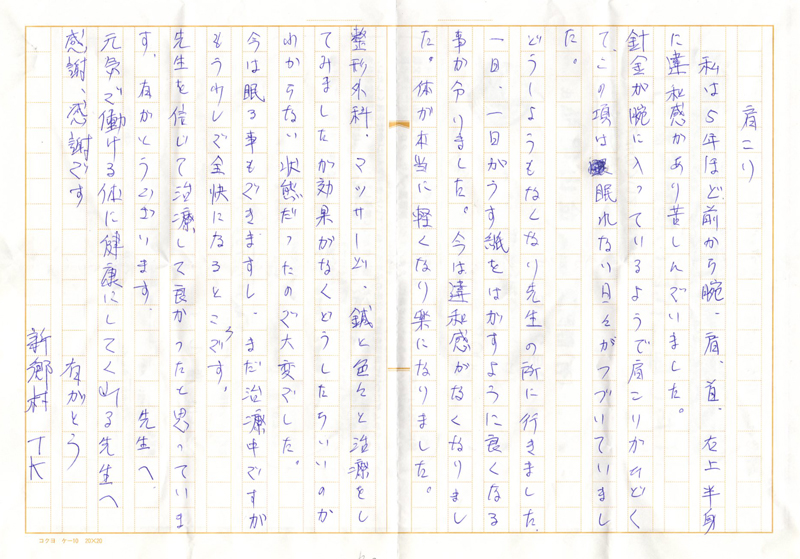 肩こり
私は5年ほど前から腕、肩、首、右上半身
に違和感があり苦しんでいました。
針金が腕に入っているようで肩こりがひどく
て、この項は眠れない日々がつづいていまし
た。
どうしようもなくなり先生の所に行きました。
一日、一日がうす紙をはがすように良くなる
事が分りました。今は違和感がなくなりまし
た。体が本当に軽くなり楽になりました。
整形外科、マッサージ、鍼と色々と治療をし
てみましたが効果がなくどうしたらいいのか
わからない状態だったので大変でした。
今は眠る事もできますし、まだ治療中ですが
もう少しで全快になるところです。
先生を信じて治療して良かったと思っていま
す。有がとうございます。 先生へ
元気で働ける体に健康にしてくれる先生へ
感謝、感謝です 有がとう
新郷村 TK
コクヨ ケー10 20×20